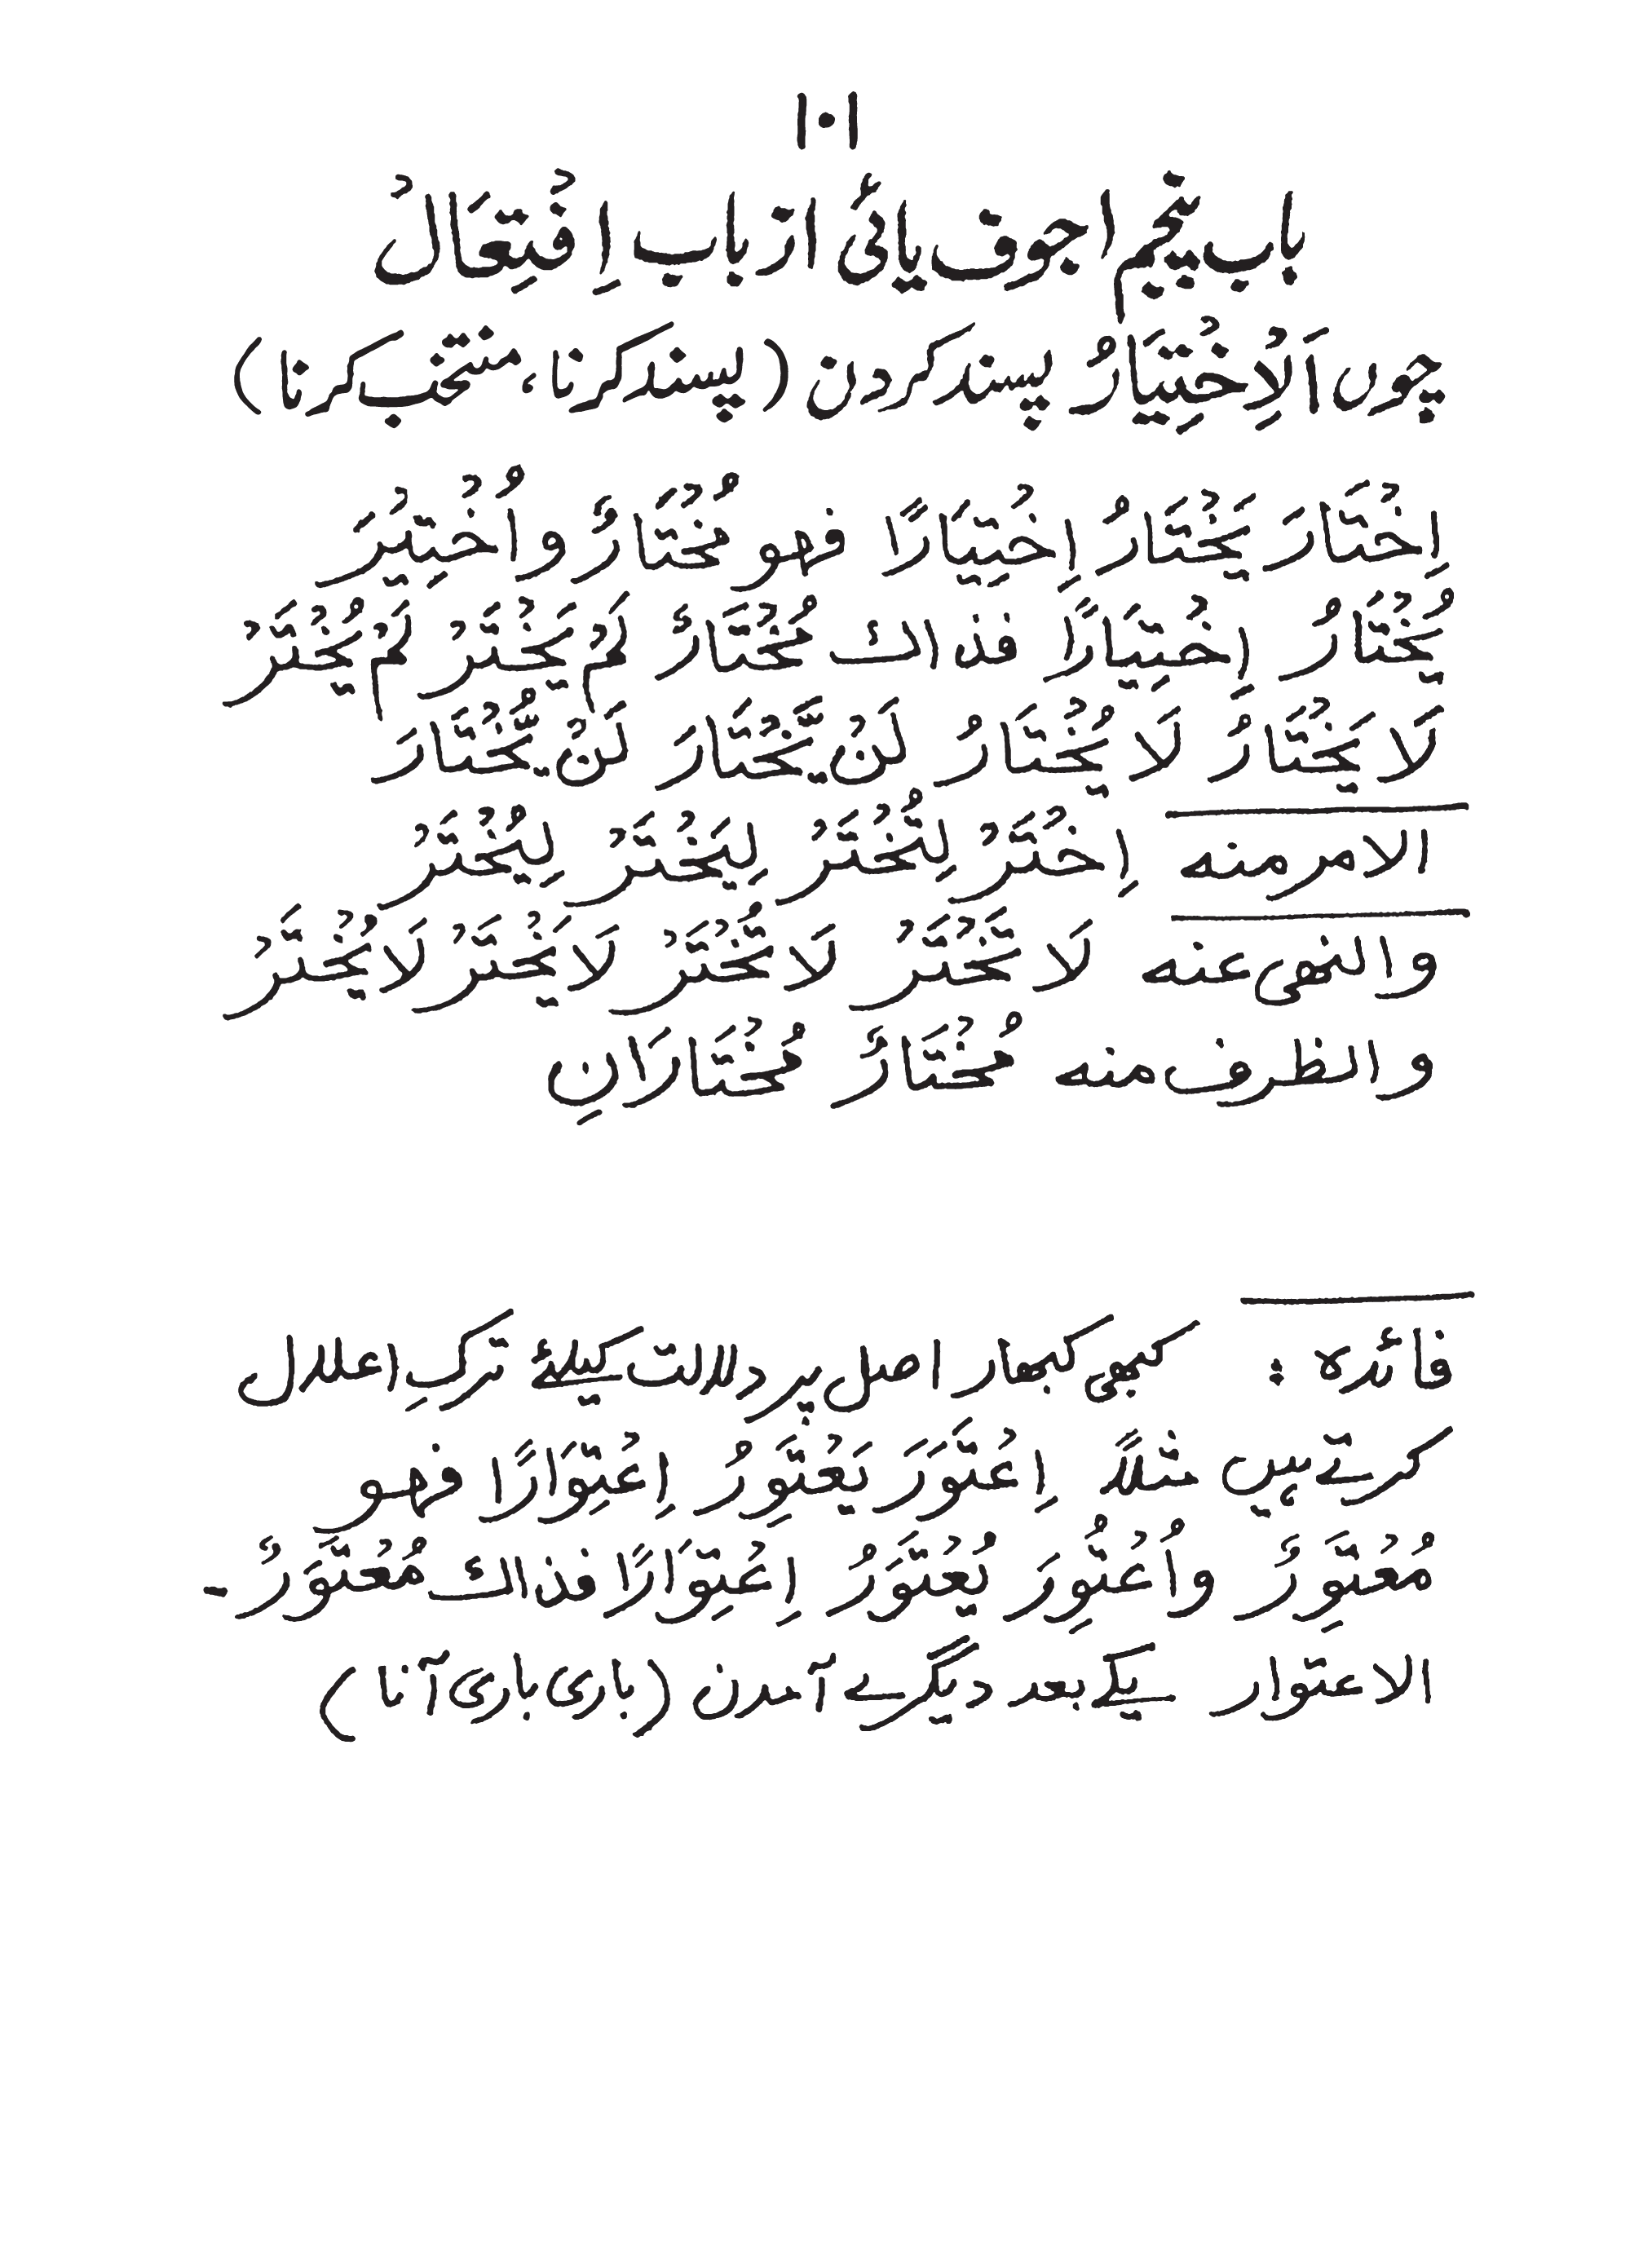 ۱۰۱
باب پنجم اجوف یائی از باب اِفْتِعَالْ
چوں اَلْاِخْتِیَارُ پسند کردن (پسند کرنا، منتخب کرنا)
اِخْتَارَ یَخْتَارُ اِخْتِیَارًا فهو مُخْتَارٌ و اُخْتِیْرَ
یُخْتَارُ اِخْتِیَارًا فذاك مُخْتَارٌ لَمْ یَخْتَرْ لَمْ یُخْتَرْ
لَا یَخْتَارُ لَا یُخْتَارُ لَنْ یَّخْتَارَ لَنْ یُّخْتَارَ
الامر منه اِخْتَرْ لِتُخْتَرْ لِیَخْتَرْ لِیُخْتَرْ
والنهی عنه لَا تَخْتَرْ لَا تُخْتَرْ لَا یَخْتَرْ لَا یُخْتَرْ
والظرف منه مُخْتَارٌ مُخْتَارَانِ
فائدہ : کبھی کبھار اصل پر دلالت کیلئے ترکِ اعلال
کرتے ہیں مثلاً اِعْتَوَرَ یَعْتَوِرُ اِعْتِوَارًا فهو
مُعْتَوِرٌ واُعْتُوِرَ یُعْتَوَرُ اِعْتِوَارًا فذاك مُعْتَوَرٌ-
الاعتوار یکے بعد دیگرے آمدن (باری باری آنا)